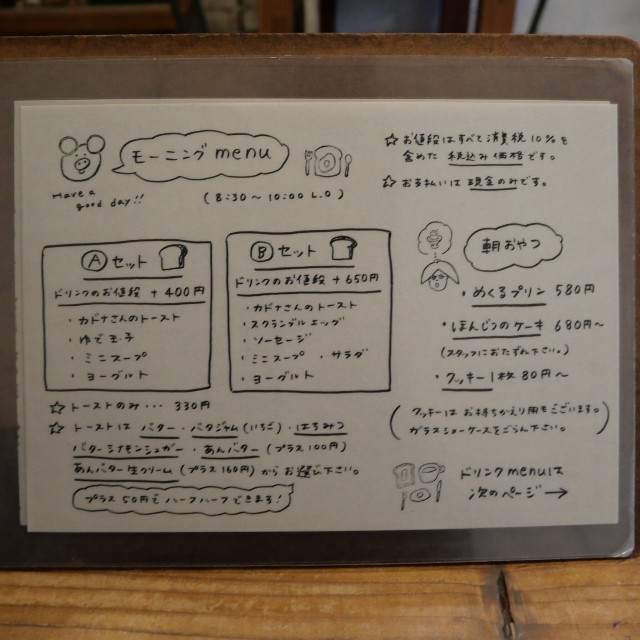 モーニング menu
Have a
good day!!
(8:30〜10:00 L.O)
☆ お値段はすべて消費税10%を
含めた 税込み価格です。
☆ お支払いは 現金のみです。
Ⓐ セット
ドリンクのお値段 + 400円
・カドナさんのトースト
・ゆで玉子
・ミニスープ
・ヨーグルト
Ⓑ セット
ドリンクのお値段 + 650円
・カドナさんのトースト
・スクランブルエッグ
・ソーセージ
・ミニスープ ・サラダ
・ヨーグルト
☆ トーストのみ… 330円
☆ トーストは バター・バタジャム(いちご)・はちみつ
バターシナモンシュガー・あんバター(プラス100円)
あんバター生クリーム(プラス160円)からお選び下さい。
プラス50円でハーフハーフできます!
朝おやつ
・めくるプリン 580円
・ほんじつのケーキ 680円〜
(スタッフにおたずね下さい。)
・クッキー1枚 80円〜
(クッキーは お持ちかえり用もございます。
ガラスショーケースをごらん下さい。)
ドリンクmenuは
次のページ→